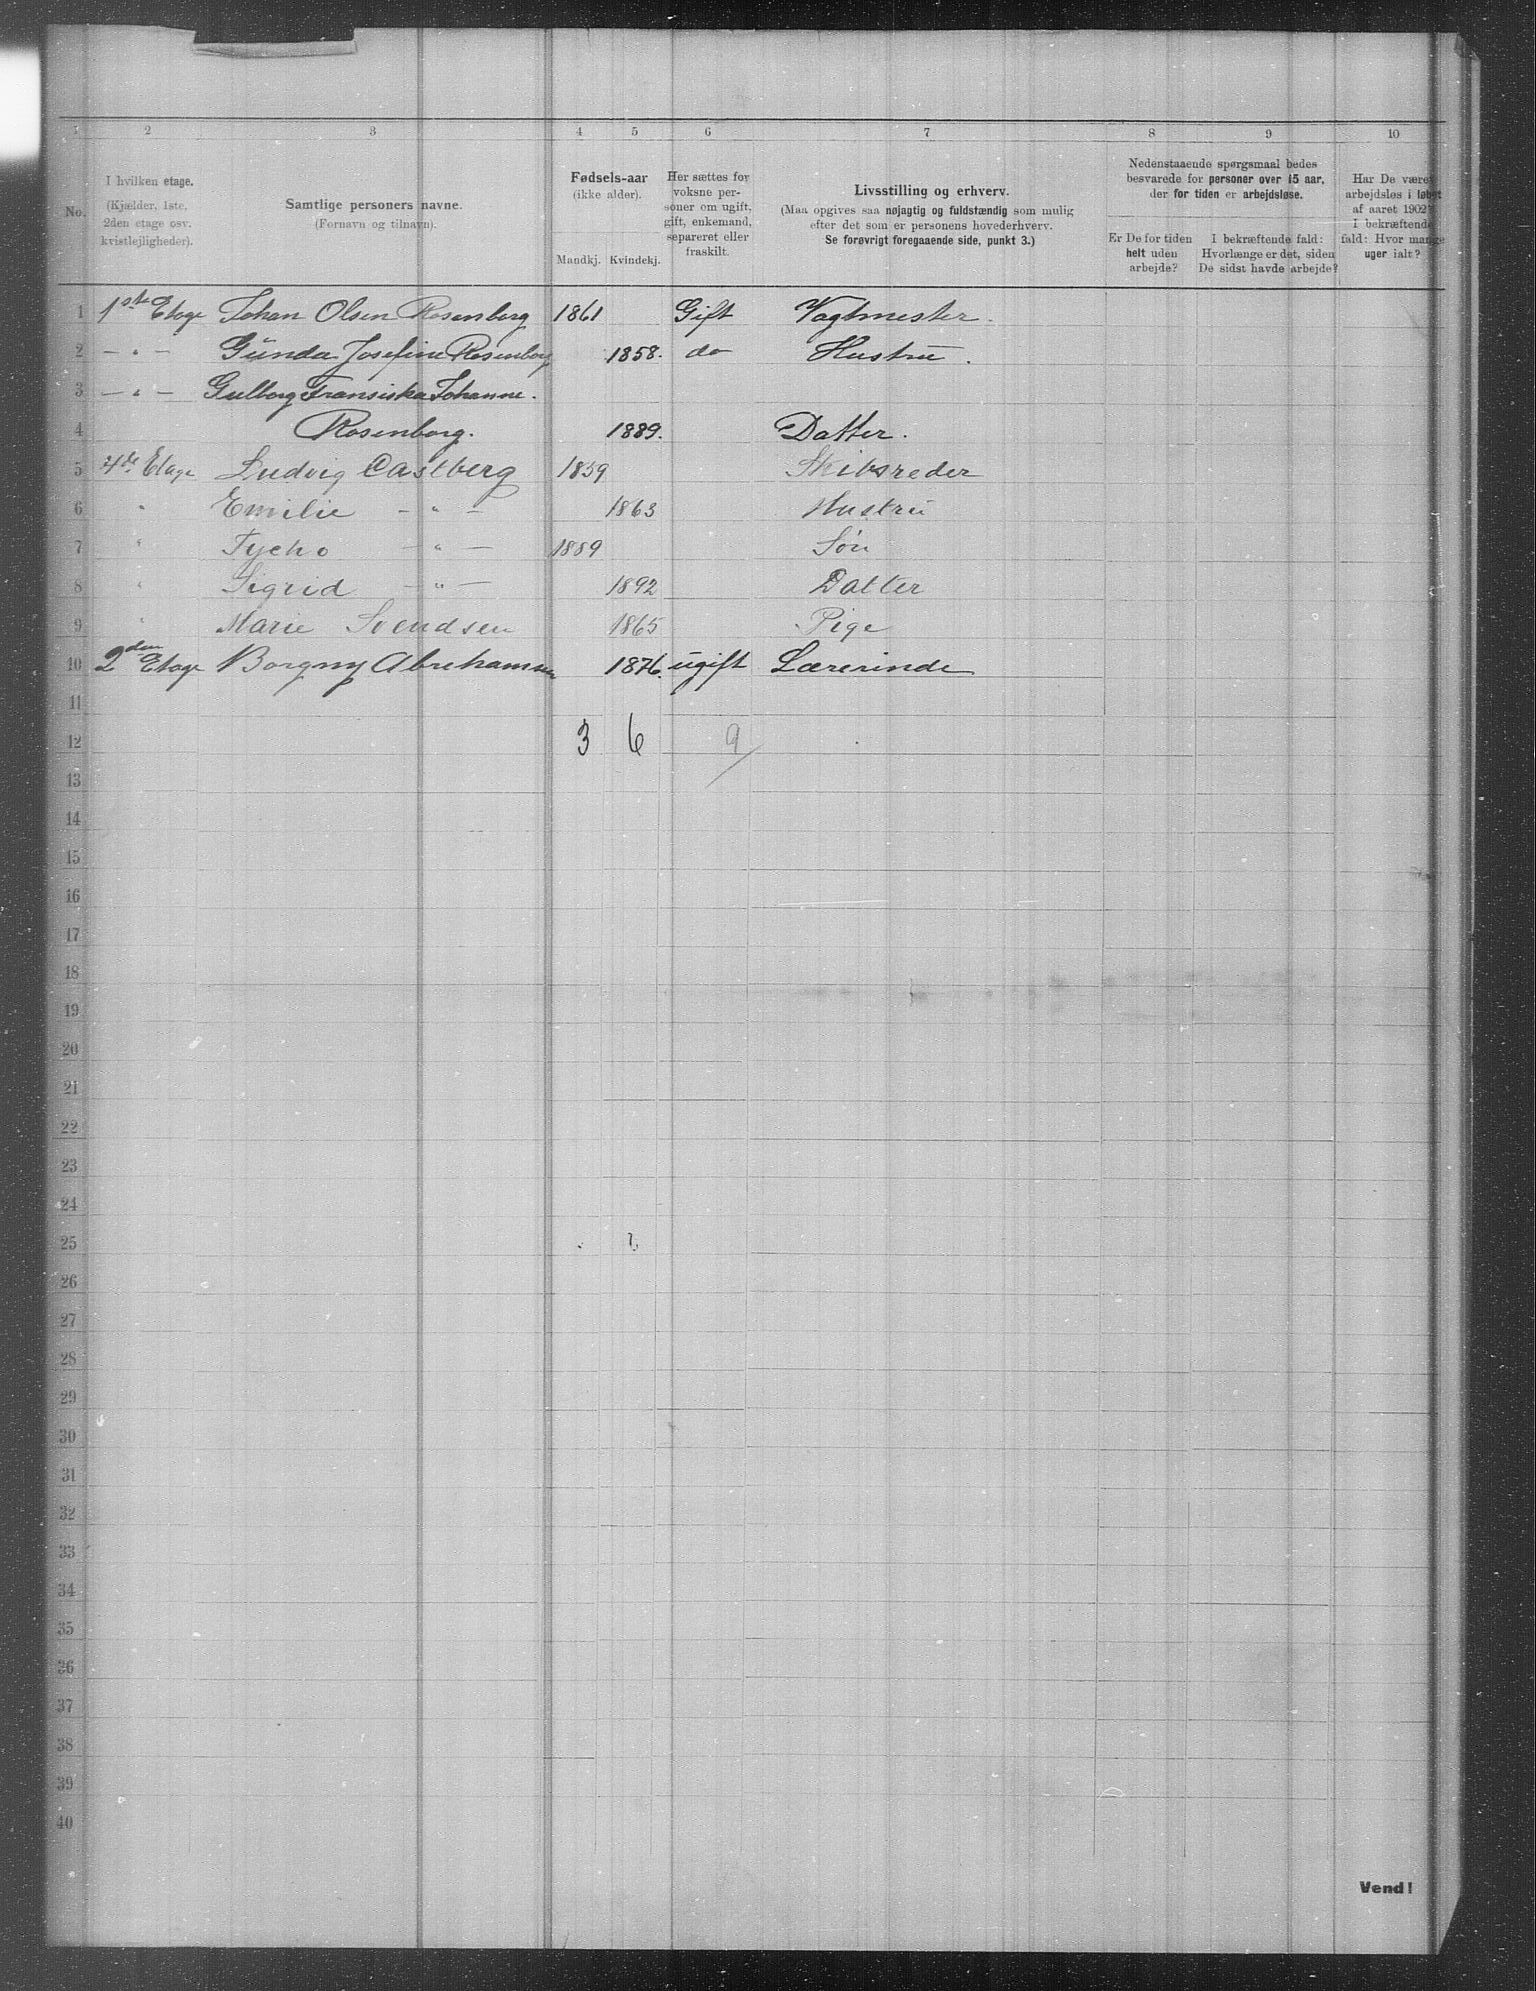 1 2 3 4 5 6 7 8 9 10
No.
I hvilken etage.
(Kjælder, 1ste,
2den etage osv.
kvistlejligheder).
Samtlige personers navne.
(Fornavn og tilnavn).
Fødsels-aar
(ikke alder).
Mandkj. Kvindekj.
Her sættes for
voksne per-
soner om ugift,
gift, enkemand,
separeret eller
fraskilt.
Livsstilling og erhverv.
(Maa opgives saa nøjagtig og fuldstændig som mulig
efter det som er personens hovederhverv.
Se forøvrigt foregaaende side, punkt 3.)
Nedenstaaende spørgsmaal bedes
besvarede for personer over 15 aar,
der for tiden er arbejdsløse.
Er De for tiden
helt uden
arbejde?
I bekræftende fald:
Hvorlænge er det, siden
De sidst havde arbejde?
Har De været
arbejdsløs i løbet
af aaret 1902?
I bekræftende
fald: Hvor mange
uger ialt?
1 1ste Etage Johan Olsen Rosenborg 1861 Gift Vagtmester.
2 — " — Günda Josefine Rosenborg 1858. do Hustrü.
3 — " — Gulborg Fransiska Johanne.
4 Rosenborg. 1889. Datter.
5 4de Etage Ludvig Castberg 1859 Skibsreder
6 " Emilie — " — 1863 Hustrü
7 " Tycho — " — 1889 Søn
8 " Sigrid — " — 1892 Datter
9 " Marie Svendsen 1865 Pige
10 2den Etage Borgny Abrehamsen 1876. ugift Lærerinde
11
12 3 6 9
13
14
15
16
17
18
19
20
21
22
23
24
25
26
27
28
29
30
31
32
33
34
35
36
37
38
39
40
Vend!